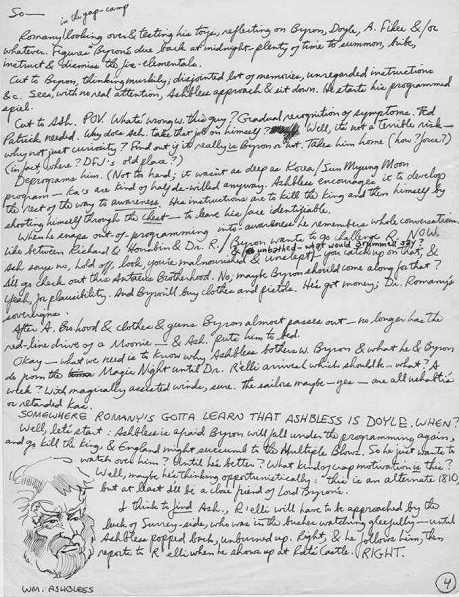 So—
in the gap-camp
Romany looking over & testing his toys, reflecting on Byron, Doyle, A. Fikee &/or
whatever. Figures Byron's due back at midnight - plenty of time to summon, bribe,
instruct & dismiss the fire-elementals.
Cut to Byron, thinking murkily; disjointed lot of memories, unregarded instructions
&c. Sees, with no real attention, Ashbless approach & sit down. He starts his programmed
spiel.
Cut to Ash. POV. Whats wrong w. this guy? Gradual recognition of symptoms. Ted
Patrick needed. Why does Ash. take that job on himself? Well, it's not a terrible risk—
why not just curiosity? Find out if it really is Byron or not. Takes him home (how? foot?)
(in fact where? DFJ's old place?)
Deprograms him. (Not too hard; it wasn't as deep as Korea/Sun Myung Moon
program - ka's are kind of half de-willed anyway. Ashbless encourages it to develop
the rest of the way to awareness. His instructions are to kill the king and then himself by
shooting himself through the chest - to leave his face identifiable.
When he snaps out-of-programming into-awareness he remembers whole conversations
like between Richard & Horrabin & Dr. R./ Byron wants to go challenge R. NOW.
so unbathed - what would Brummell say?
Ash says no, hold off, look, you're malnourished & unslept - you catch up on that, &
I'll go check out this Antaeus Brotherhood. No, maybe Byron should come along for that?
Yeah, for plausibility. And Byron'll buy clothes and pistols. He's got money; Dr. Romany's
sovereigns.
After A. B'hood & clothes & guns Byron almost passes out - no longer has the
red-line drive of a Moonie - & Ash. puts him to bed.
Okay - what we need is to know why Ashbless bothers w. Byron & what he & Byron
do from the Magic Night until Dr. R'elli arrives which should be - what? A
week? With magically assisted winds, sure. The sailors maybe - yes - are all ushabtis
or retarded kas.
SOMEWHERE ROMANY'S GOTTA LEARN THAT ASHBLESS IS DOYLE. WHEN?
Well, let's start: Ashbless is afraid Byron will fall under the programming again,
and go kill the king, & England might succumb to the Multiple Blows. So he just wants to
watch over him? Until he's better? What kind of crap motivation is this?
Well, maybe he's thinking opportunistically: "this is an alternate 1810,
but at least I'll be a close friend of Lord Byron's.
I think to find Ash., R'elli will have to be approached by the
luck of Surrey-side, who was in the bushes watching gleefully - until
Ashbless popped back, unburned up. Right, & he follows him, then
reports to R'elli when he shows up at Rats' Castle. RIGHT.
WM. ASHBLESS
4